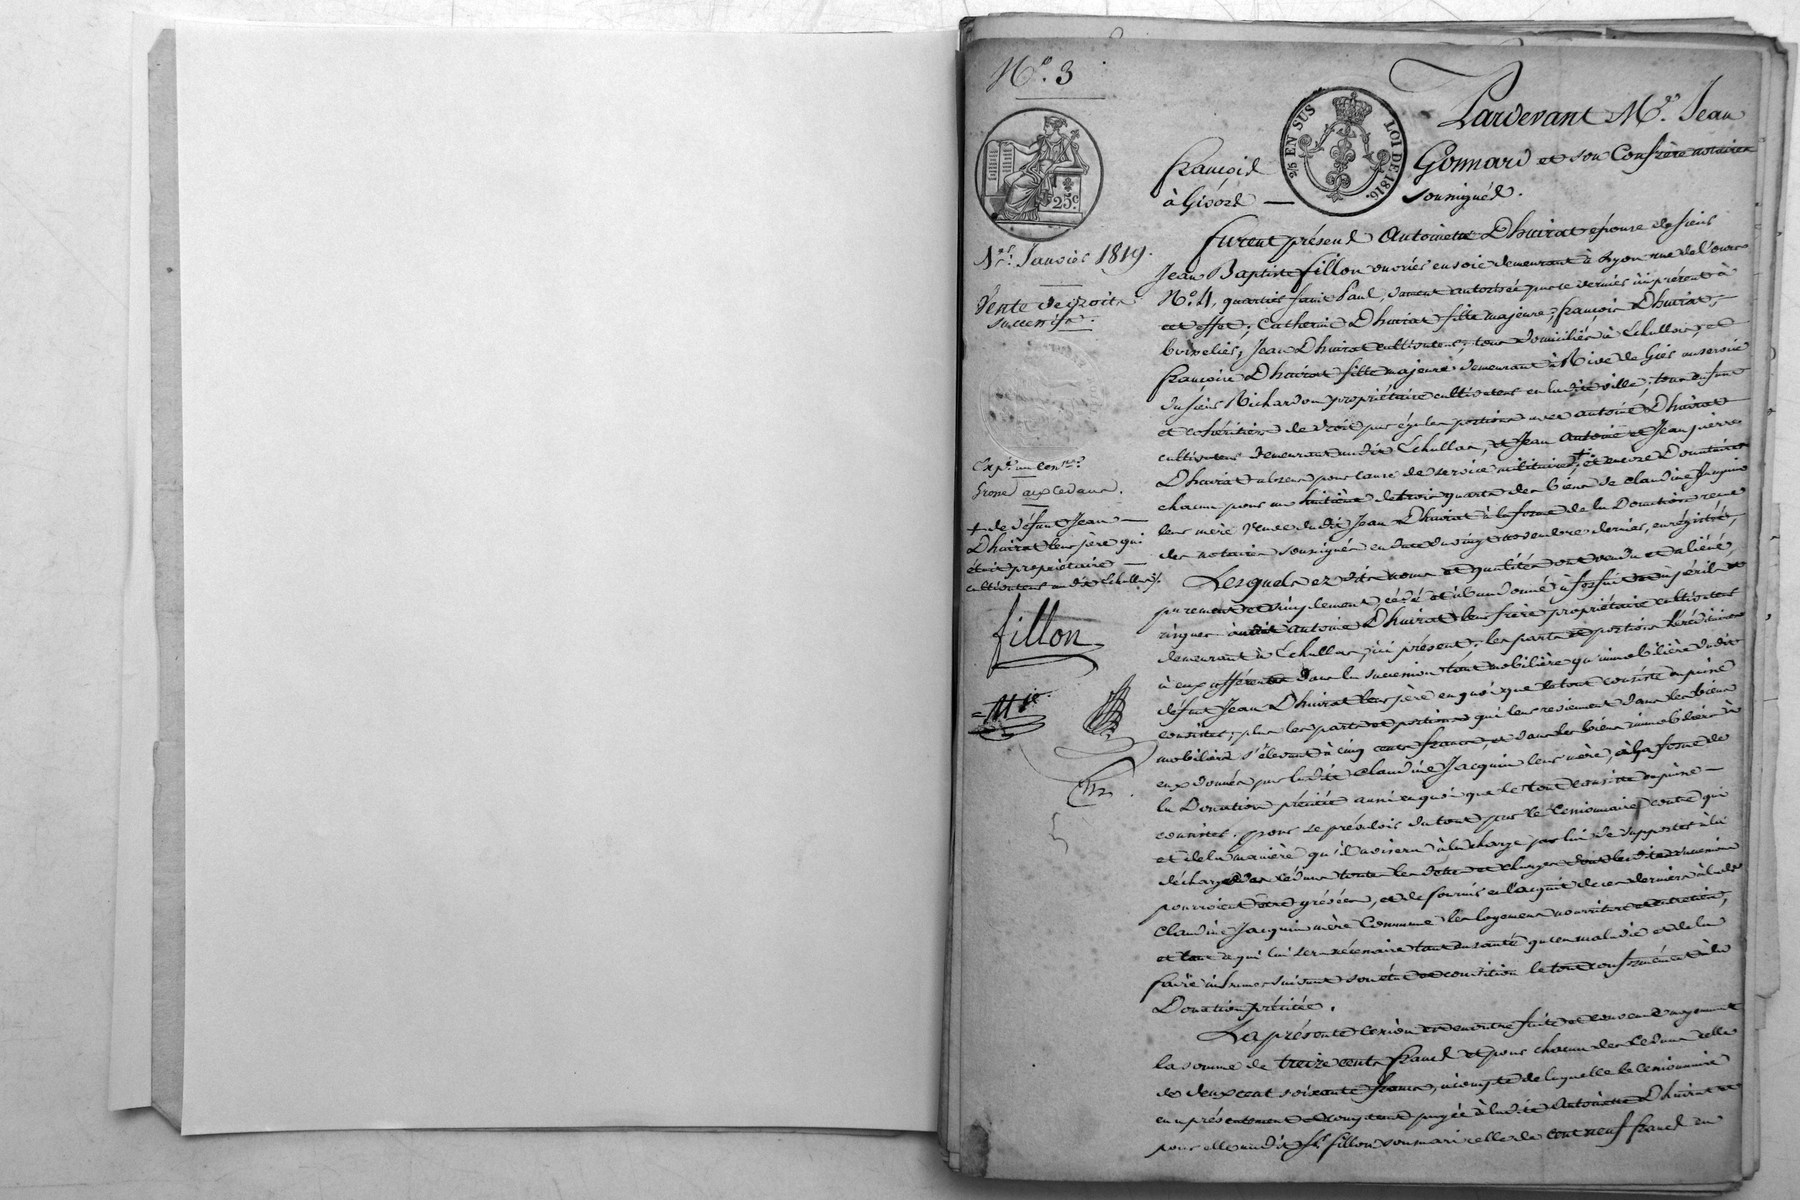 N.º 3
2/5 EN SUS
LOI DE 1816.
25 c
1.er Janvier 1819.
Vente de droits
successifs.
Exp.on
Grosse aux cedans.
+ de défunt Jean
Dhuirat leur père qui
étoit propriétaire
cultivateur au dit Echallas
fillon
Pardevant M.e Jean
François Gonnard et son Confrère notaires
à Givors soussignés.
furent présens Antoinette Dhuirat épouse de sieur
Jean Baptiste fillon ouvrier en soie demeurant à Lyon rue de l'ourse
N.º 4, quartier saint Paul, dument autorisée par ce dernier ici présent à
cet effet; Catherine Dhuirat fille majeure; françois Dhuirat,
Jean Dhuirat cultivateur, tous domiciliés à Echallas, et
françoise Dhuirat fille majeure demeurant à Rive de Gier au service
du sieur Richardon propriétaire cultivateur en la dite ville; tous enfans
et cohéritiers de droit par égales portions avec antoine Dhuirat
cultivateur demeurant au dit Echallas, et Jean antoine et Jean pierre
Dhuirat absens pour cause de service militaire +, et encore Donataires
chacun pour un huitième des trois quarts des biens de claudine Jacquin
leur mère veuve du dit Jean Dhuirat à la forme de la Donation reçue
des notaires soussignés en date du vingt novembre dernier, enrégistrée,
Lesquels ez dits noms et qualités ont vendu et aliéné,
purement et simplement cédé et abandonné à forfait et à péril et
risques audit antoine Dhuirat leur frère propriétaire cultivateur
demeurant à Echallas, ici présent, les parts et portions héréditaires
à eux afférentes dans la succession tant mobilière qu'immobilière du dit
défunt Jean Dhuirat leur père en quoi que le tout consiste ou puisse
consister, plus les parts et portions qui leur reviennent dans les biens
mobiliers s'élevant à cinq cents francs, et dans les biens immobiliers à
eux donnés par la dite Claudine Jacquin leur mère, à la forme de
la Donation précitée aussi en quoi que le tout consiste ou puisse
consister. pour se prévaloir du tout par le Cessionnaire comme qui
et de la manière qu'il avisera à la charge par lui de supporter à la
décharge des cédans toutes les dettes et charges dont les dites successions
pourroient être grévées, et de fournir en l'acquit de ces derniers à la dite
Claudine Jacquin mère Commune les logemens nourriture et entretien,
et tout ce qui lui sera nécessaire tant en santé qu'en maladie et de la
faire inhumer suivant son état et condition le tout conformément à la
Donation précitée.
La présente cession est en outre faite et convenue moyennant
la somme de treize cents francs et pour chacun des cédans celle
de deux cent soixante francs, à compte de laquelle le cessionnaire
en a présentement et comptant payé à la dite Antoinette Dhuirat et
pour elle au dit S.r fillon son mari celle de cent neuf francs en